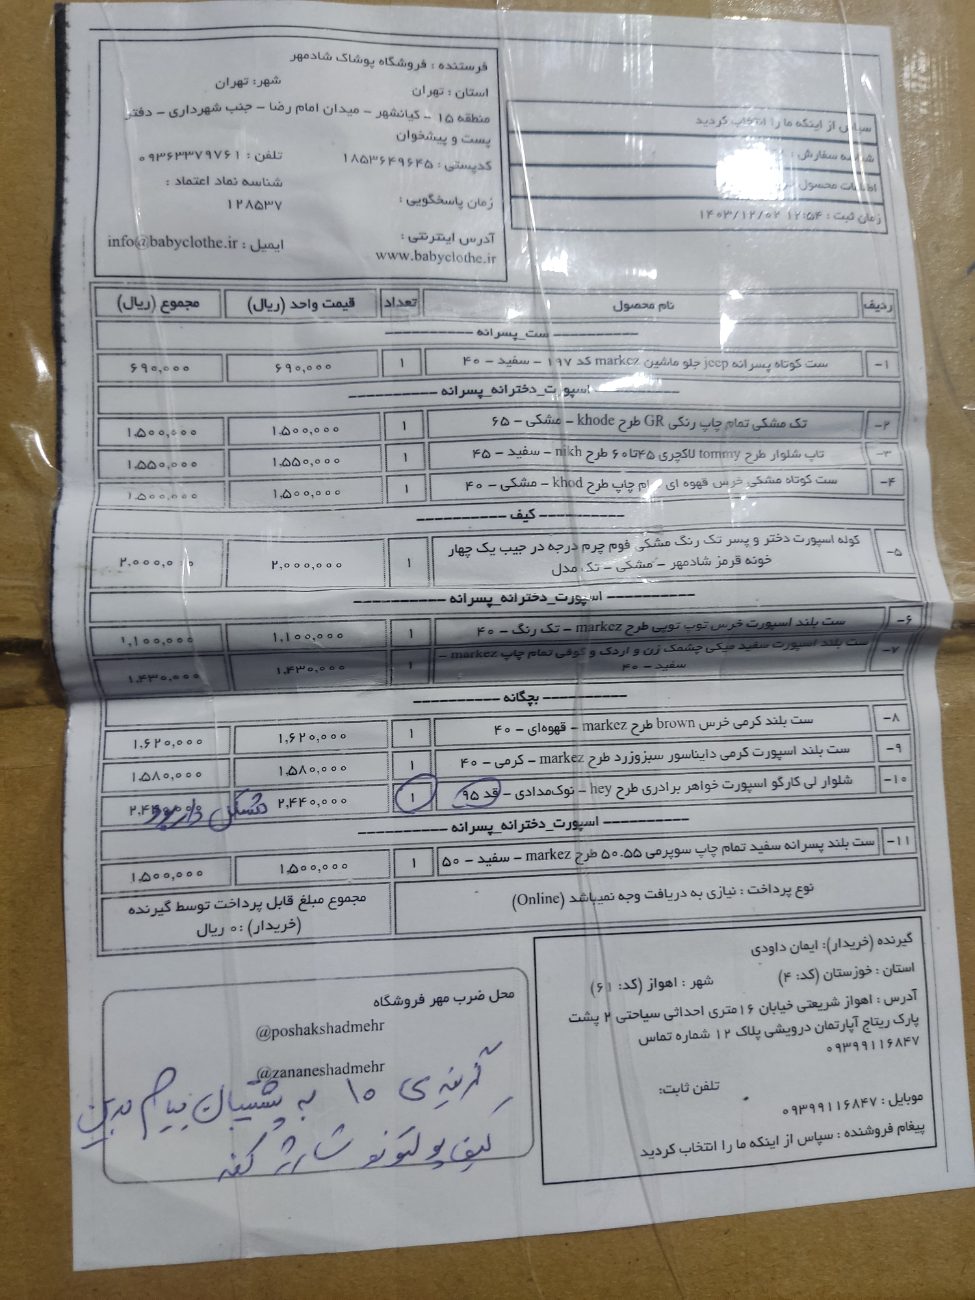 فرستنده : فروشگاه پوشاک شادمهر
استان : تهران شهر: تهران
منطقه ۱۵ - کیانشهر - میدان امام رضا - جنب شهرداری - دفتر
پست و پیشخوان
کدپستی : ۱۸۵۳۶۴۹۶۴۵ تلفن : ۰۹۳۶۲۳۷۹۷۶۱
زمان پاسخگویی : شناسه نماد اعتماد :
۱۲۸۵۳۷
آدرس اینترنتی : ایمیل : info@babyclothe.ir
www.babyclothe.ir
سپاس از اینکه ما را انتخاب کردید
شناسه سفارش :
اطلاعات محصول
زمان ثبت : ۱۲:۵۴ ۱۴۰۳/۱۲/۰۲
ردیف نام محصول تعداد قیمت واحد (ریال) مجموع (ریال)
---------- ست_پسرانه ----------
۱- ست کوتاه پسرانه jeep جلو ماشین markez کد ۱۹۷ - سفید - ۴۰ ۱ ۶۹۰,۰۰۰ ۶۹۰,۰۰۰
---------- اسپورت_دخترانه_پسرانه ----------
۲- تک مشکی تمام چاپ رنگی GR طرح khode - مشکی - ۶۵ ۱ ۱,۵۰۰,۰۰۰ ۱,۵۰۰,۰۰۰
۳- تاپ شلوار طرح tommy لاکچری ۴۵تا۶۰ طرح nikh - سفید - ۴۵ ۱ ۱,۵۵۰,۰۰۰ ۱,۵۵۰,۰۰۰
۴- ست کوتاه مشکی خرس قهوه ای تمام چاپ طرح khod - مشکی - ۴۰ ۱ ۱,۵۰۰,۰۰۰ ۱,۵۰۰,۰۰۰
---------- کیف ----------
۵- کوله اسپورت دختر و پسر تک رنگ مشکی فوم چرم درجه در جیب یک چهار ۱ ۲,۰۰۰,۰۰۰ ۲,۰۰۰,۰۰۰
خونه قرمز شادمهر - مشکی - تک مدل
---------- اسپورت_دخترانه_پسرانه ----------
۶- ست بلند اسپورت خرس توپ توپی طرح markez - تک رنگ - ۴۰ ۱ ۱,۱۰۰,۰۰۰ ۱,۱۰۰,۰۰۰
۷- ست بلند اسپورت سفید میکی چشمک زن و اردک و گوفی تمام چاپ markez - ۱ ۱,۴۳۰,۰۰۰ ۱,۴۳۰,۰۰۰
سفید - ۴۰
---------- بچگانه ----------
۸- ست بلند کرمی خرس brown طرح markez - قهوه‌ای - ۴۰ ۱ ۱,۶۲۰,۰۰۰ ۱,۶۲۰,۰۰۰
۹- ست بلند اسپورت کرمی دایناسور سبزوزرد طرح markez - کرمی - ۴۰ ۱ ۱,۵۸۰,۰۰۰ ۱,۵۸۰,۰۰۰
۱۰- شلوار لی کارگو اسپورت خواهر برادری طرح hey - نوک‌مدادی - قد ۹۵ ۱ ۲,۴۴۰,۰۰۰ ۲,۴۴۰,۰۰۰
مشکل دار بود
---------- اسپورت_دخترانه_پسرانه ----------
۱۱- ست بلند پسرانه سفید تمام چاپ سوپرمی ۵۰.۵۵ طرح markez - سفید - ۵۰ ۱ ۱,۵۰۰,۰۰۰ ۱,۵۰۰,۰۰۰
نوع پرداخت : نیازی به دریافت وجه نمیباشد (Online)
مجموع مبلغ قابل پرداخت توسط گیرنده
(خریدار) : ۰ ریال
گیرنده (خریدار): ایمان داودی
استان : خوزستان (کد: ۴) شهر : اهواز (کد: ۶۱)
آدرس : اهواز شریعتی خیابان ۱۶متری احداثی سیاحتی ۲ پشت
پارک ریتاج آپارتمان درویشی پلاک ۱۲ شماره تماس
۰۹۳۹۹۱۱۶۸۴۷
تلفن ثابت:
موبایل : ۰۹۳۹۹۱۱۶۸۴۷
پیغام فروشنده : سپاس از اینکه ما را انتخاب کردید
محل ضرب مهر فروشگاه
@poshakshadmehr
@zananeshadmehr
گزینه ی ۱۰ به پشتیبان پیام بدین
کیف پولتونو شارژ کنه